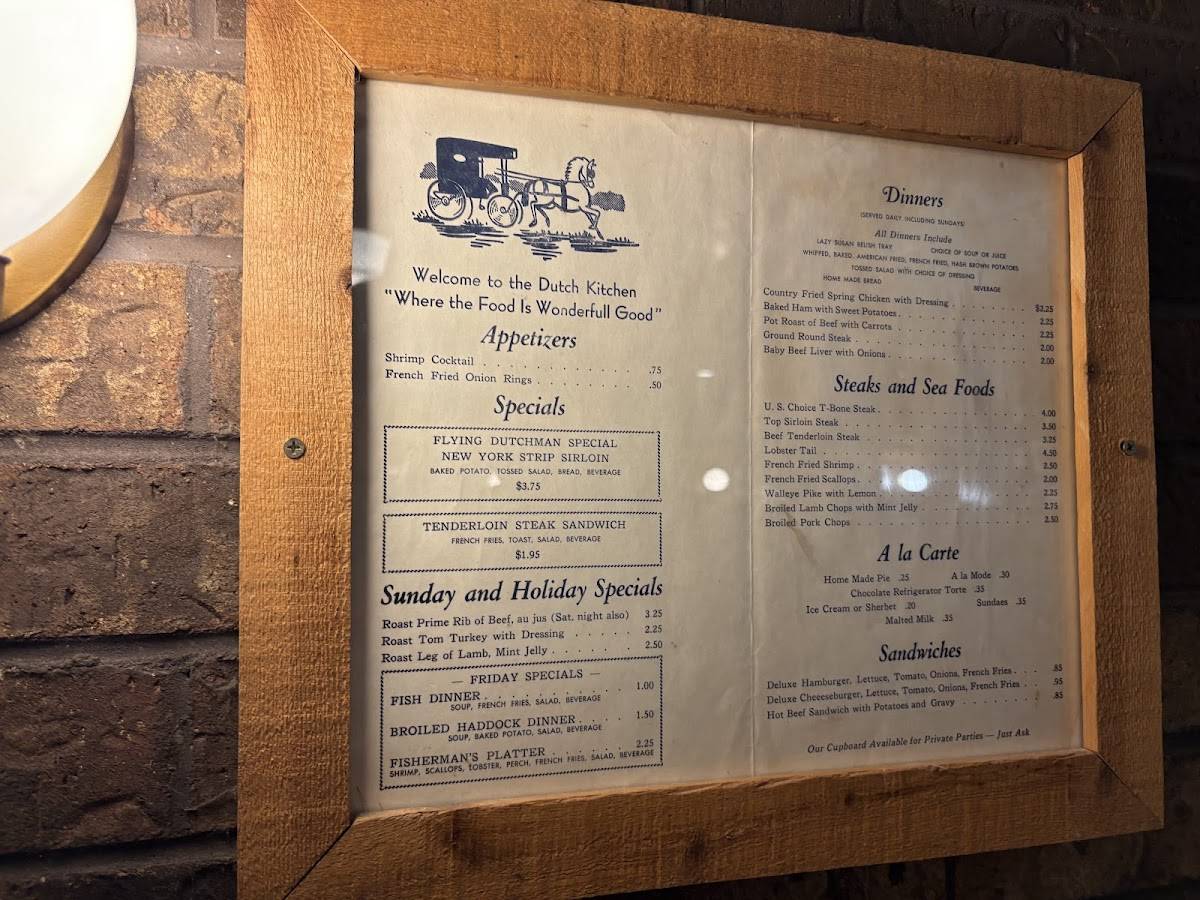 Welcome to the Dutch Kitchen
"Where the Food Is Wonderfull Good"
Appetizers
Shrimp Cocktail . . . . . . . . . . .75
French Fried Onion Rings . . . . . . . .50
Specials
FLYING DUTCHMAN SPECIAL
NEW YORK STRIP SIRLOIN
BAKED POTATO, TOSSED SALAD, BREAD, BEVERAGE
$3.75
TENDERLOIN STEAK SANDWICH
FRENCH FRIES, TOAST, SALAD, BEVERAGE
$1.95
Sunday and Holiday Specials
Roast Prime Rib of Beef, au jus (Sat. night also) 3 25
Roast Tom Turkey with Dressing . . . . . 2.25
Roast Leg of Lamb, Mint Jelly . . . . . . 2.50
— FRIDAY SPECIALS —
FISH DINNER . . . . . . . . . 1.00
SOUP, FRENCH FRIES, SALAD, BEVERAGE
BROILED HADDOCK DINNER . . . . 1.50
SOUP, BAKED POTATO, SALAD, BEVERAGE
FISHERMAN'S PLATTER . . . . . . 2.25
SHRIMP, SCALLOPS, LOBSTER, PERCH, FRENCH FRIES, SALAD, BEVERAGE
Dinners
(SERVED DAILY, INCLUDING SUNDAYS)
All Dinners Include
LAZY SUSAN RELISH TRAY CHOICE OF SOUP OR JUICE
WHIPPED, BAKED, AMERICAN FRIED, FRENCH FRIED, HASH BROWN POTATOES
TOSSED SALAD WITH CHOICE OF DRESSING
HOME MADE BREAD BEVERAGE
Country Fried Spring Chicken with Dressing . . . . . . $2.25
Baked Ham with Sweet Potatoes . . . . . . . . . 2.25
Pot Roast of Beef with Carrots . . . . . . . . . 2.25
Ground Round Steak . . . . . . . . . . . . 2.00
Baby Beef Liver with Onions . . . . . . . . . . 2.00
Steaks and Sea Foods
U. S. Choice T-Bone Steak . . . . . . . . . . . 4.00
Top Sirloin Steak . . . . . . . . . . . . . 3.50
Beef Tenderloin Steak . . . . . . . . . . . . 3.25
Lobster Tail . . . . . . . . . . . . . . 4.50
French Fried Shrimp . . . . . . . . . . . . 2.50
French Fried Scallops . . . . . . . . . . . . 2.00
Walleye Pike with Lemon . . . . . . . . . . . 2.25
Broiled Lamb Chops with Mint Jelly . . . . . . . . 2.75
Broiled Pork Chops . . . . . . . . . . . . 2.50
A la Carte
Home Made Pie .25 A la Mode .30
Chocolate Refrigerator Torte .35
Ice Cream or Sherbet .20 Sundaes .35
Malted Milk .35
Sandwiches
Deluxe Hamburger, Lettuce, Tomato, Onions, French Fries . . . .85
Deluxe Cheeseburger, Lettuce, Tomato, Onions, French Fries . . . .95
Hot Beef Sandwich with Potatoes and Gravy . . . . . . .85
Our Cupboard Available for Private Parties — Just Ask